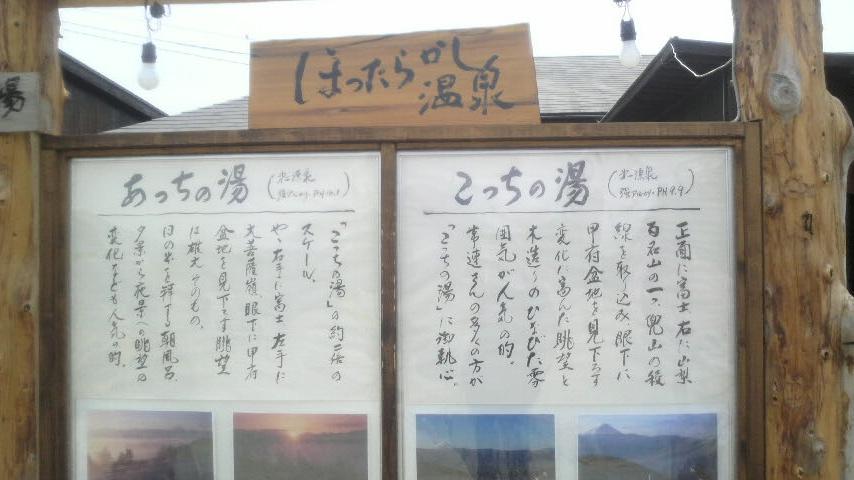 ほったらかし
温泉
湯
こっちの湯
正面に富士、右に山梨
百名山の一つ、兜山の稜
線を取り込み、眼下に
甲府盆地を見下ろす
変化に富んだ眺望と
木造りのひなびた雰
囲気が人気の的。
常連さんの多くの方が
「こっちの湯」に御執心。
あっちの湯
「こっちの湯」の約二倍の
スケール。
やゝ右手に富士、左手に
大菩薩嶺、眼下に甲府
盆地を見下ろす眺望
は雄大そのもの。
日の出を拝する朝風呂、
夕景から夜景への眺望の
変化なども人気の的。